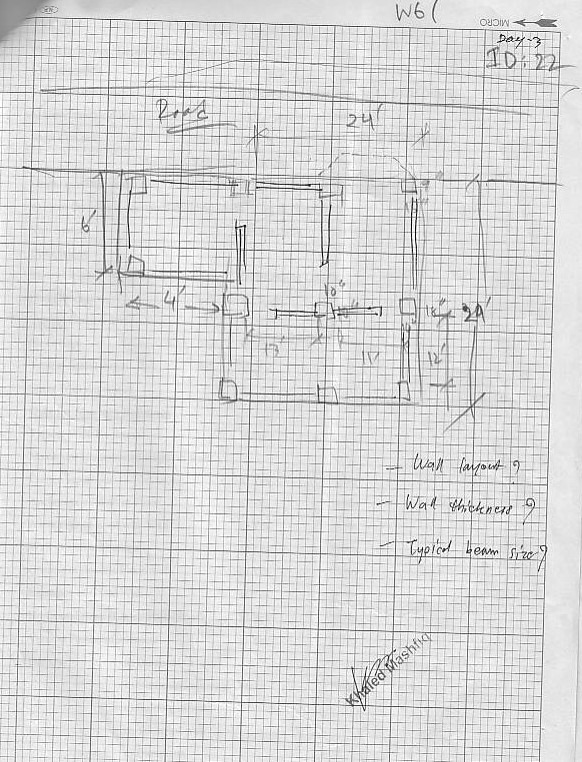 W6(
MICRO
Day-3
ID: 22
Road
24'
6'
10"
4'
18"
24'
13'
11'
12'
- Wall layout?
- Wall thickness?
- Typical beam size?
Khaled Mashfiq